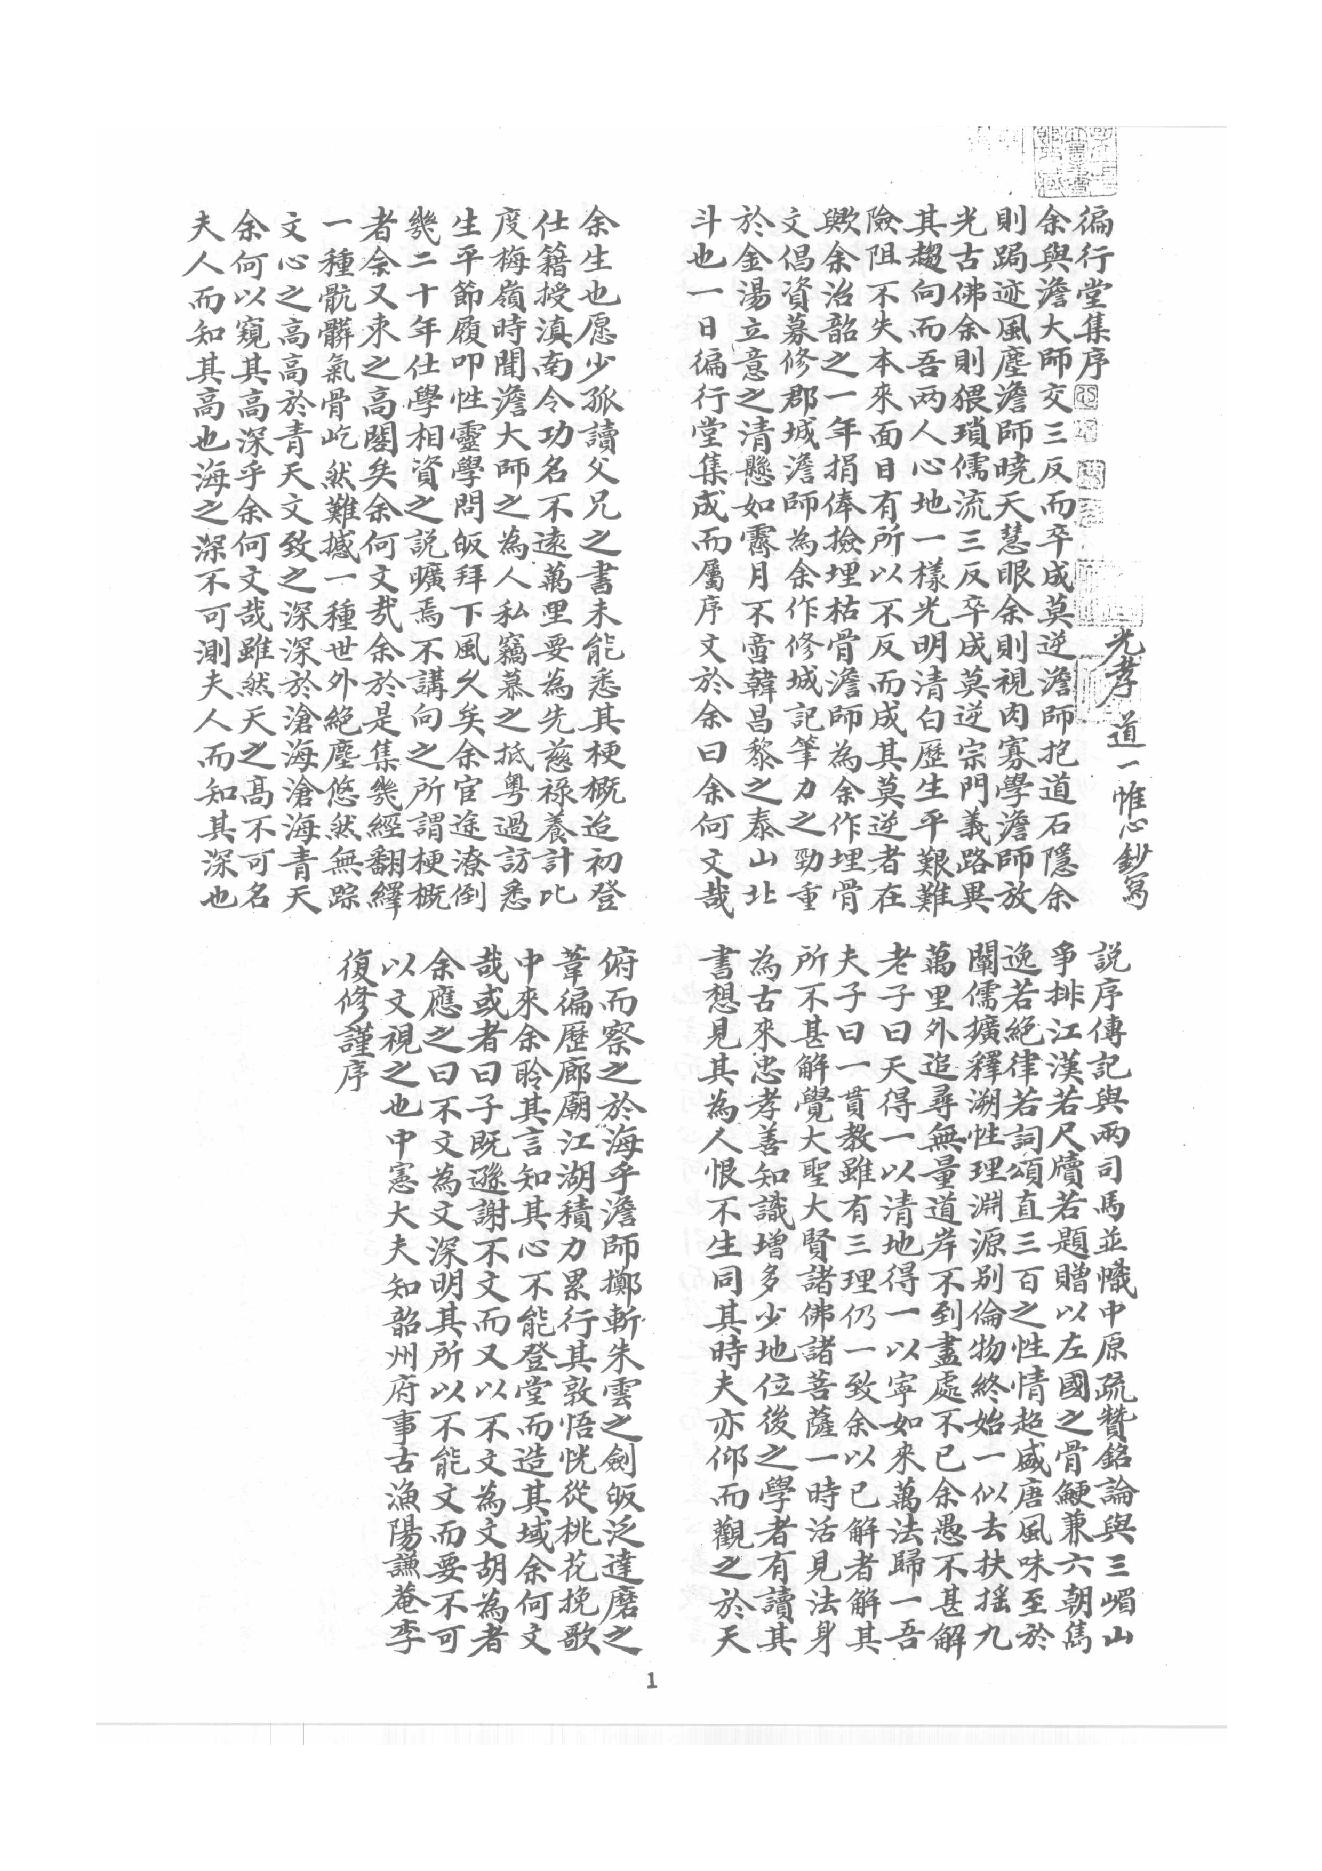 光孝道一惟心鈔寫
徧行堂集序
余與澹大師交三反而卒成莫逆澹師抱道石隱余
則跼迹風塵澹師曉天慧眼余則視肉寡學澹師放
光古佛余則猥瑣儒流三反卒成莫逆宗門義路異
其趨向而吾两人心地一樣光明清白歷生平艱難
險阻不失本來面目有所以不反而成其莫逆者在
歟余治韶之一年捐俸撿埋枯骨澹師為余作埋骨
文倡資募修郡城澹師為余作修城記筆力之勁重
於金湯立意之清懸如霽月不啻韓昌黎之泰山北
斗也一日徧行堂集成而屬序文於余曰余何文哉
余生也愿少孤讀父兄之書未能悉其梗概迨初登
仕籍授滇南令功名不遠萬里要為先慈祿養計比
度梅嶺時聞澹大師之為人私竊慕之抵粵過訪悉
生平節履叩性靈學問皈拜下風久矣余官途潦倒
幾二十年仕學相資之説曠焉不講向之所謂梗概
者余又束之高閣矣余何文哉余於是集幾經翻繹
一種骯髒氣骨屹然難撼一種世外絕塵悠然無踪
文心之高高於青天文致之深深於滄海滄海青天
余何以窺其高深乎余何文哉雖然天之高不可名
夫人而知其高也海之深不可測夫人而知其深也
説序傳記與兩司馬並幟中原疏贊銘論與三嵋山
爭排江漢若尺牘若題贈以左國之骨鯁兼六朝雋
逸若絕律若詞頌直三百之性情超盛唐風味至於
闡儒擴釋溯性理淵源別倫物終始一似去扶搖九
萬里外追尋無量道岸不到盡處不已余愚不甚解
老子曰天得一以清地得一以寧如來萬法歸一吾
夫子曰一貫教雖有三理仍一致余以已解者解其
所不甚解覺大聖大賢諸佛諸菩薩一時活見法身
為古來忠孝善知識增多少地位後之學者有讀其
書想見其為人恨不生同其時夫亦仰而觀之於天
俯而察之於海乎澹師擲斬朱雲之劍皈泛達磨之
葦徧歷廊廟江湖積力累行其敦悟恍從桃花挽歌
中來余聆其言知其心不能登堂而造其域余何文
哉或者曰子既遜謝不文而又以不文為文胡為者
余應之曰不文為文深明其所以不能文而要不可
以文視之也中憲大夫知韶州府事古漁陽謙菴李
復修謹序
1